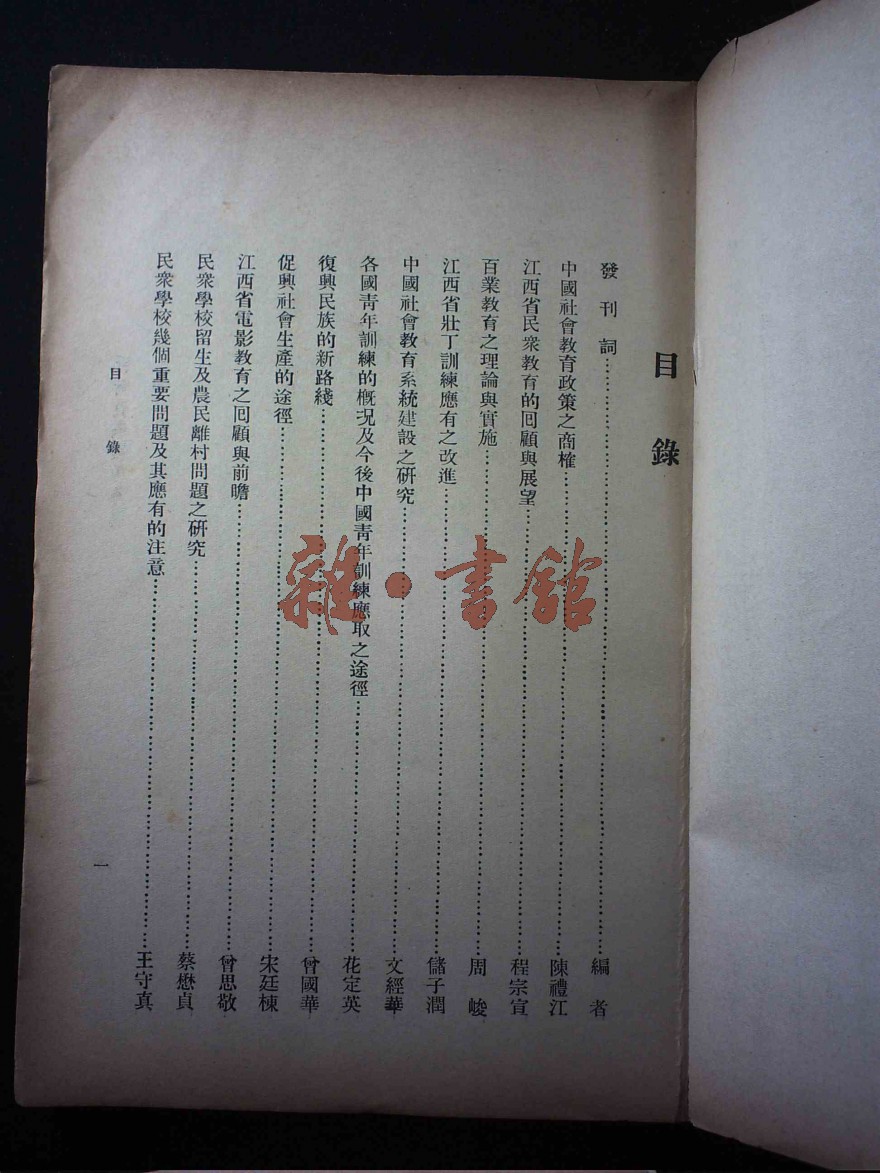 目錄
發刊詞……編者
中國社會教育政策之商榷……陳禮江
江西省民衆教育的回顧與展望……程宗宣
百業教育之理論與實施……周峻
江西省壯丁訓練應有之改進……儲子潤
中國社會教育系統建設之研究……文經華
各國靑年訓練的槪况及今後中國靑年訓練應取之途徑……花定英
復興民族的新路綫……曾國華
促興社會生產的途徑……宋廷棟
江西省電影教育之回顧與前瞻……曾思敬
民衆學校留生及農民離村問題之研究……蔡懋貞
民衆學校幾個重要問題及其應有的注意……王守真
目錄
一
雜·書館